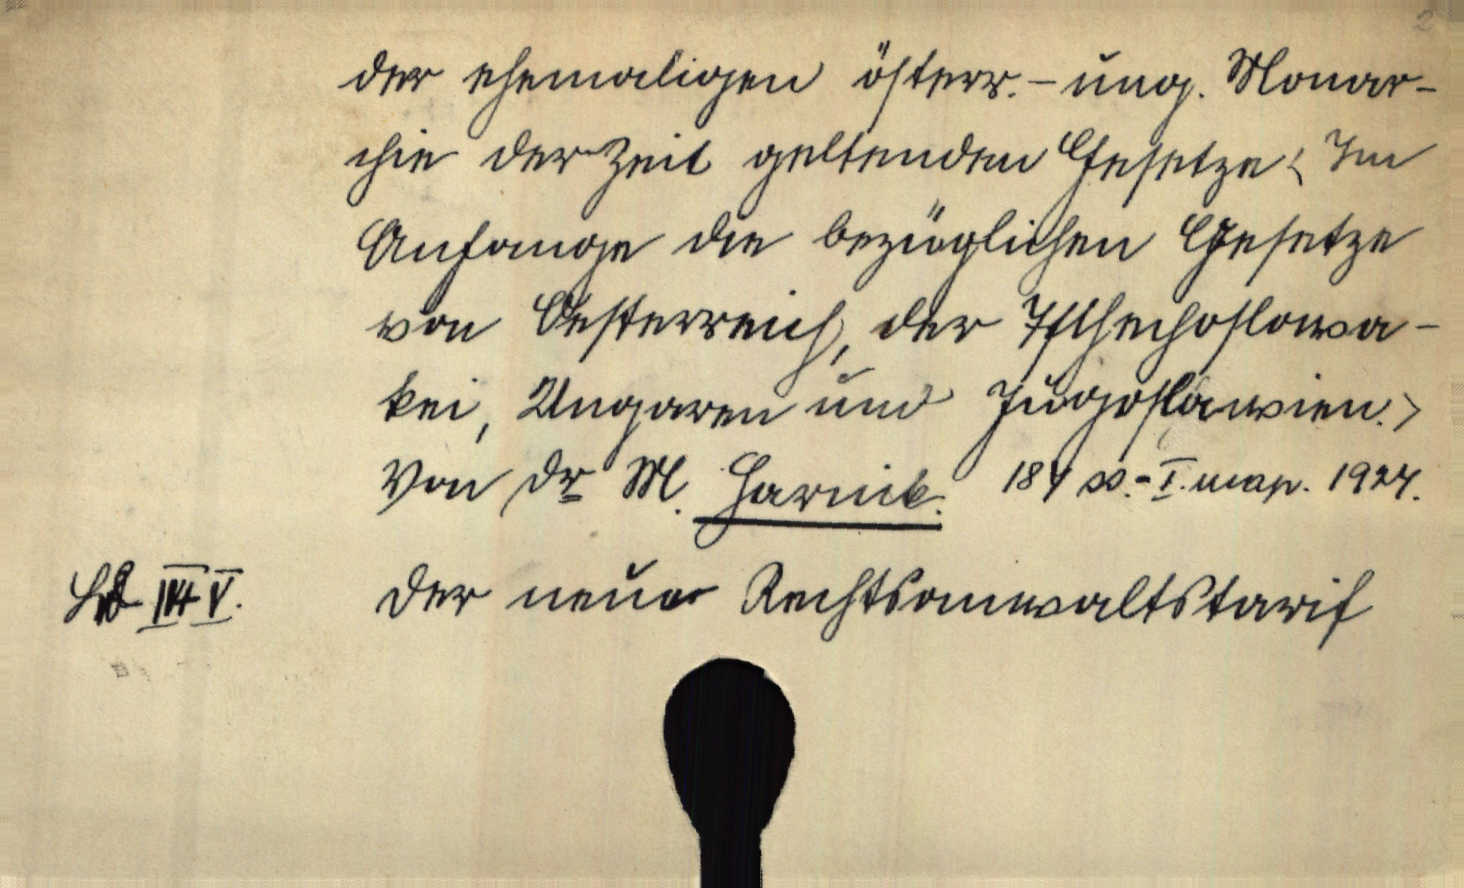 2
der ehemaligen österr.-ung. Monar-
chie der Zeit geltenden Gesetze < Im
Anfange die bezüglichen Gesetze
von Oesterreich, der Tschechoslowa-
kei, Ungaren und Jugoslawien. >
Von Dr M. Harnik. 184 s.-I. map. 1924.
IV V. Der neue Rechtsanwaltstarif